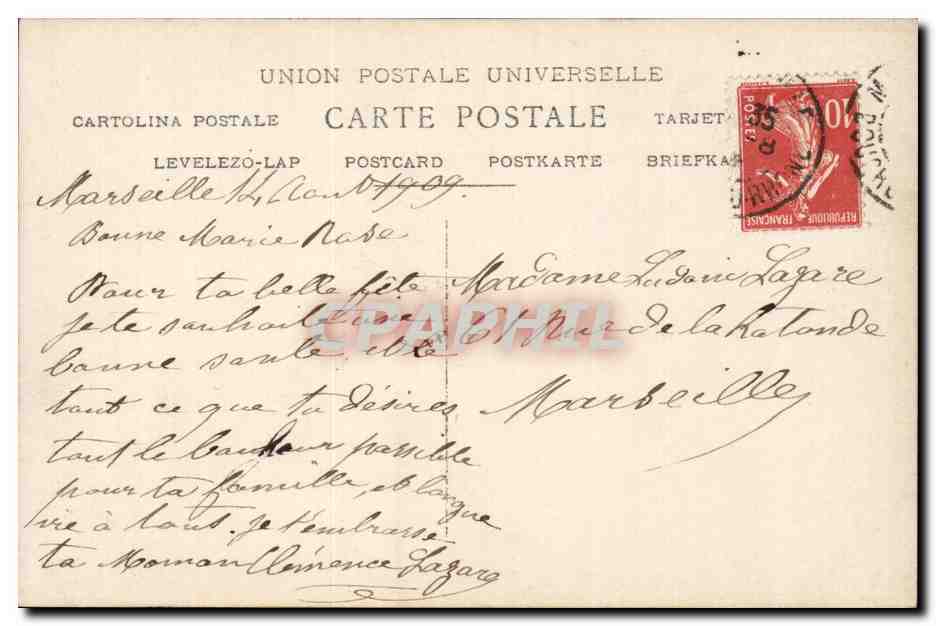 UNION POSTALE UNIVERSELLE
CARTOLINA POSTALE CARTE POSTALE TARJETA
LEVELEZÖ-LAP POSTCARD POSTKARTE BRIEFKA
10
POSTES
REPUBLIQUE FRANÇAISE
Marseille 14 Aout 1909
Bonne Marie Rose
Pour ta belle fête
je te souhaite une
bonne santé et
tout ce que tu désires
tout le bonheur possible
pour ta famille, et longue
vie à tous. je t'embrasse
ta Maman Clémence Lazare
Madame Ludovic Lazare
61 Rue de la Rotonde
Marseille
CPAPHIL